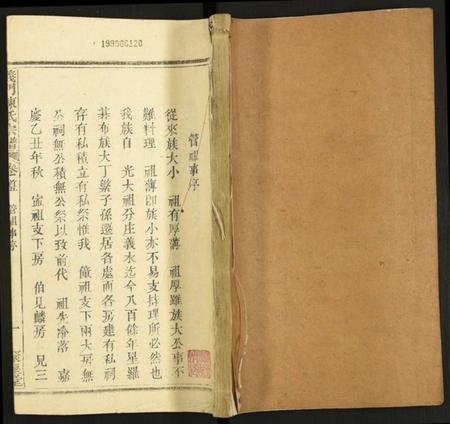 199906120
管祖事序
從來族大小　祖有厚薄　祖厚雖族大公事不
難料理　祖薄卽族小亦不易支持理所必然也
我族自　光大祖分庄義水迄今八百餘年星羅
棊布族大丁繁子孫遷居各處而各房建有私祠
存有私積立有私祭惟我　僮祖支下兩大房無
公祠無公積無公祭以致前代　祖失冷落　嘉
慶乙丑年秋　僮祖支下房　伯見麟房　兄三
義門陳氏宗譜　卷首　管祖事序　一